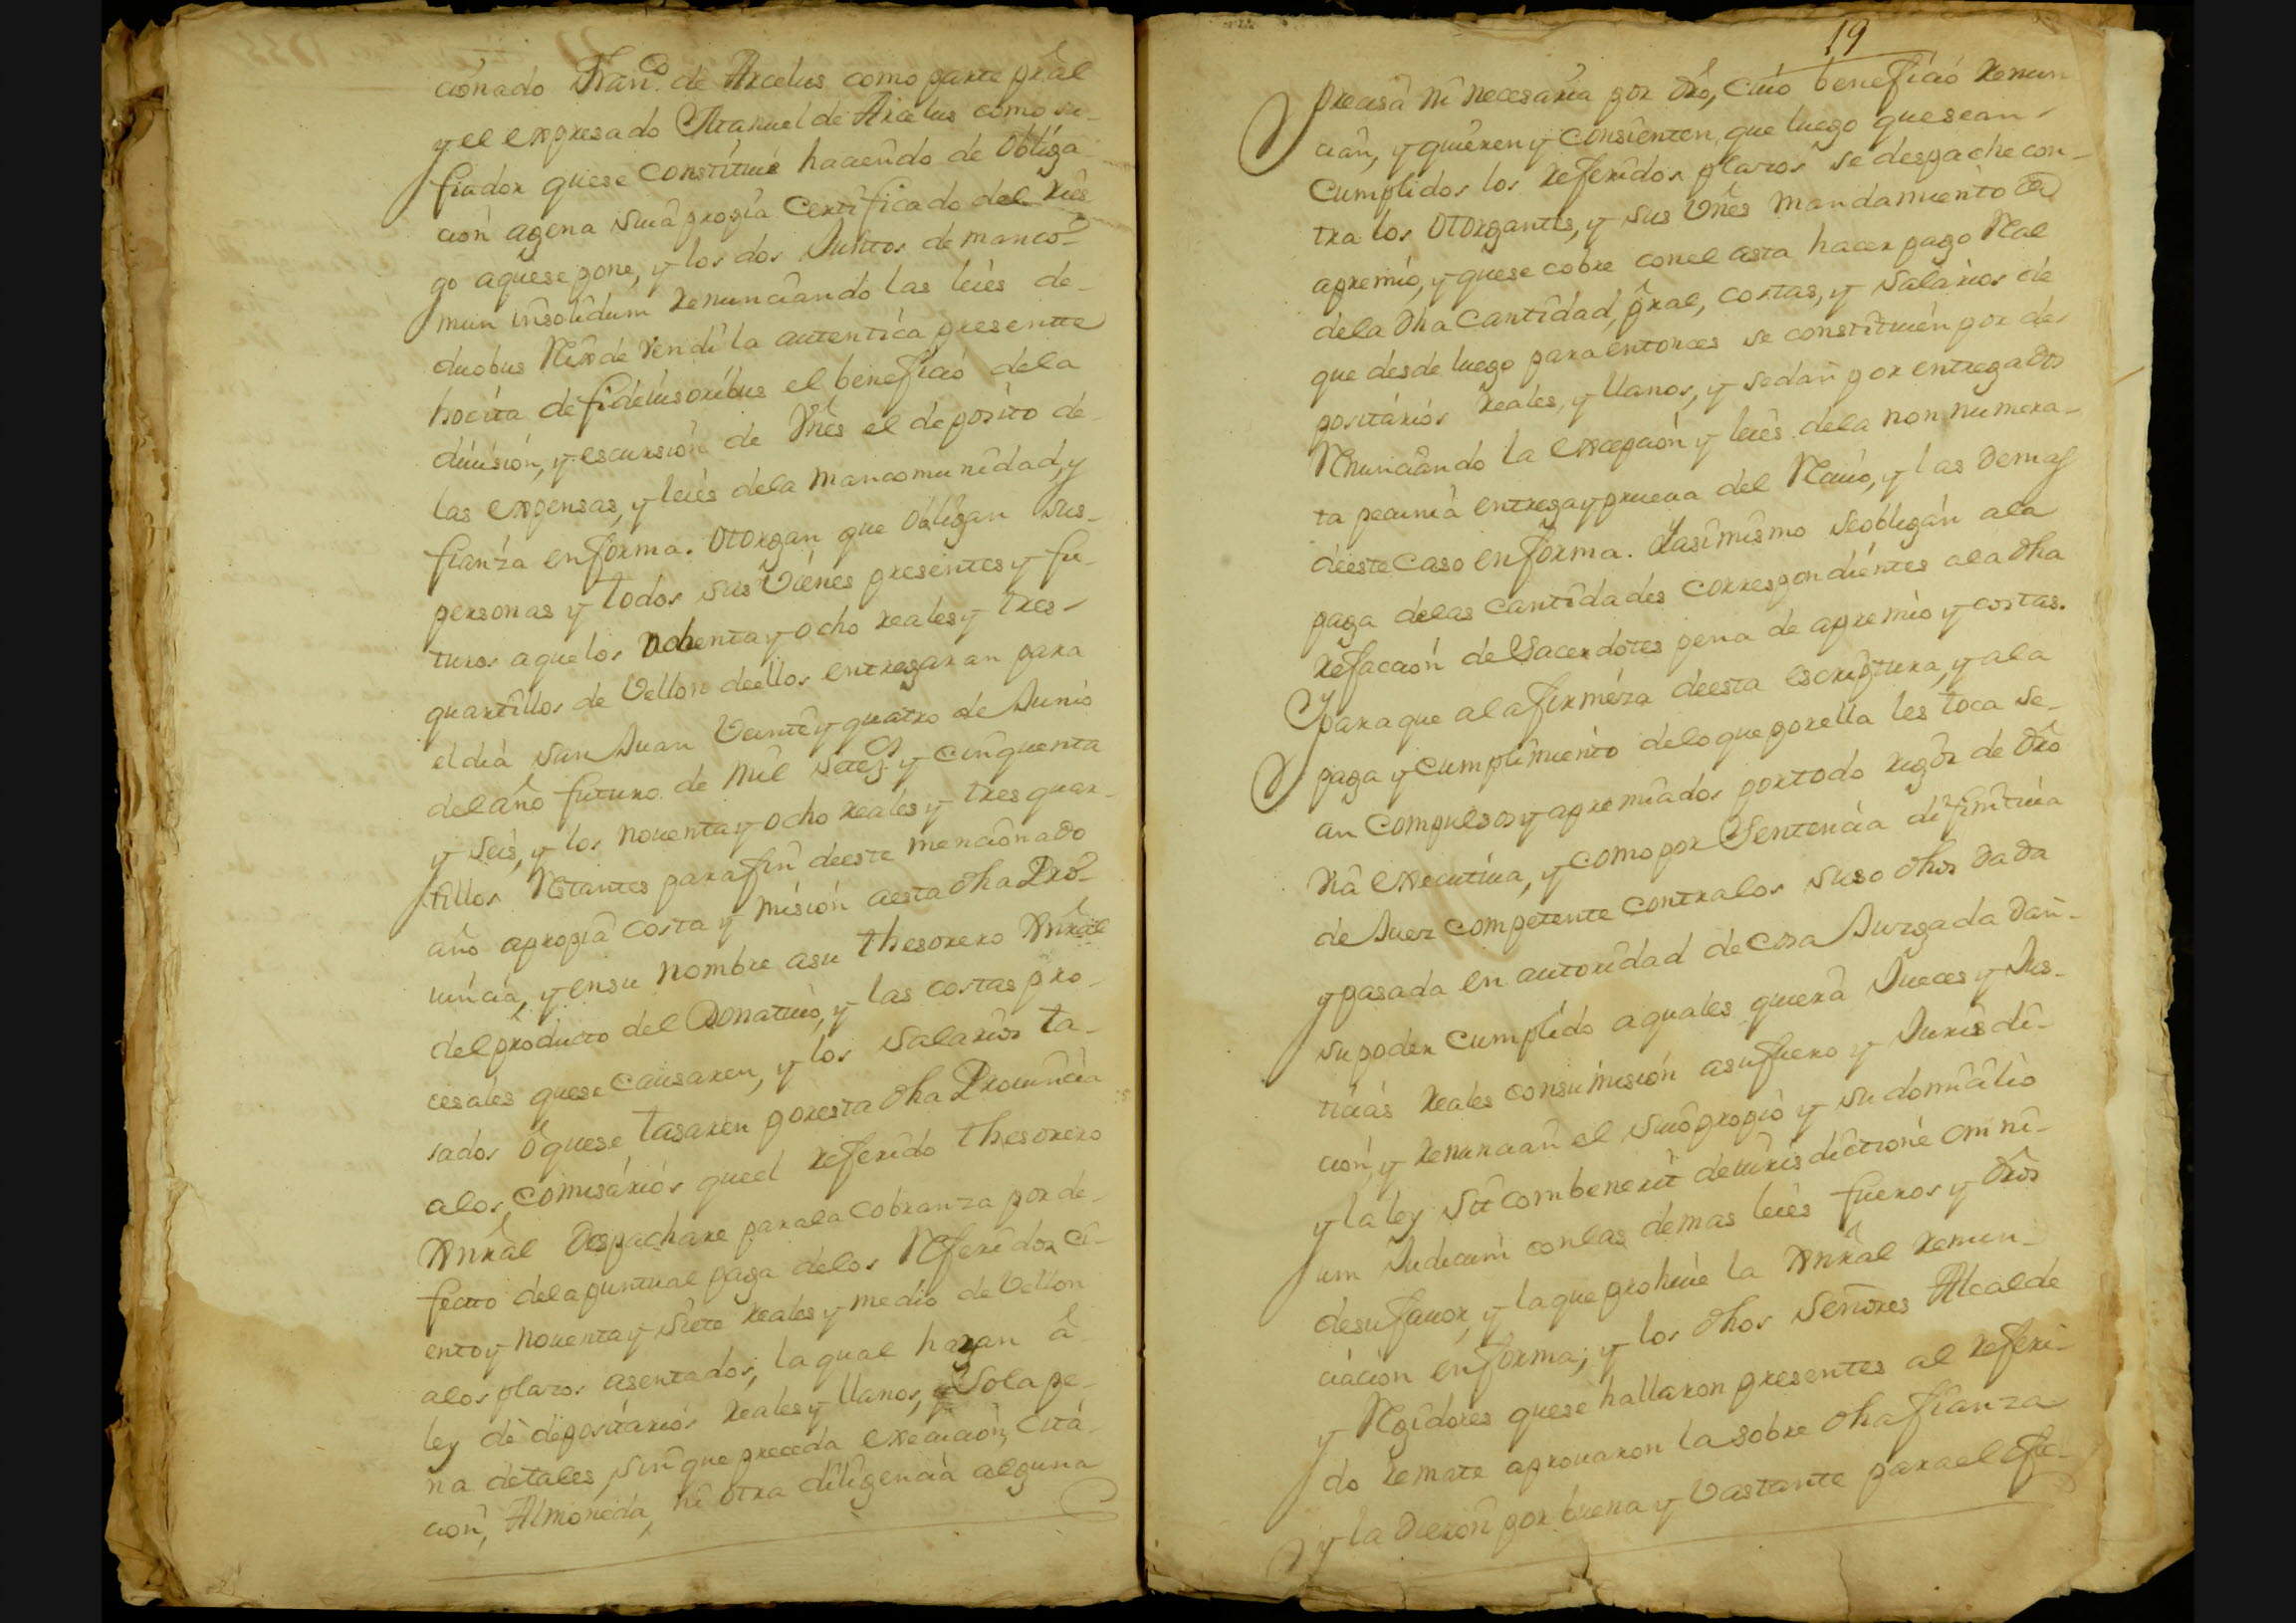 cionado Fran.co de Arcelus como parte prâl
y el expresado Manuel de Arcelus como su
fiador quese constituie haciendo de obliga
cion agena suia propia Certificado del Ries
go aquese pone, y los dos Juntos de manco
mun insolidum Renunciando las leies de
duobus Rex de vendi la autentica presentte
hocita de fideiusoribus el beneficio dela
division, y escursion de Vñes el deposito de
las expensas, y leies dela mancomunidad, y
fianza en forma. Otorgan que obligan sus
personas y todos sus Vienes presentes y fu
turos aquelos Nobenta y ocho reales y tres
quartillos de Vellon deellos entregaran para
el dia San Juan Veinte y quatro de Junio
del año futuro de mil setez.os y cinquenta
y seis, y los noventa y ocho reales y tres quar
tillos Restantes para fin deeste mencionado
año apropia costa y mision aesta dha Pro
uincia, y ensu nombre asu thesorero Gnrâl
del producto del Donatiuo, y las costas pro
cesales quese causaren, y los salarios ta
sados o quese tasaren poresta dha Prouincia
alos Comisarios queel referido thesorero
Gnrâl Despachare parala cobranza por de
fecto dela puntual paga delos Referidos ci
ento y nouenta y siete reales y medio de Vellon
alos plazos asentados, la qual hazan â
ley de depositarios reales y llanos, y Sola pe
na detales, sin que preceda execucion, cita
cion, Almoneda, ni otra diligencia alguna
19
precisa ni necesaria por dro, cuio beneficio Renun
cian, y quieren y consienten, que luego quesean
cumplidos los referidos plazos se despache con
tra los otorgantes, y sus Vñes mandamiento de
apremio, y quese cobre conel asta hacer pago Real
dela dha Cantidad, prâl, costas, y salarios de
que desde luego para entonces se constituien por de
positarios reales, y llanos, y sedan por entregados
Renunciando la excepcion y leies dela non numera
ta pecunia entrega y prueua del Reciuo, y las demas
deeste caso en forma. Yasimismo seobligan ala
paga delas cantidades correspondientes ala dha
Refaccion de Sacerdotes pena de apremio y costas.
Y paraque ala firmeza deesta escriptura, y ala
paga y cumplimiento delo que porella les toca se
an compulsos y apremiados portodo rigor de dro
via executiua, y como por Sentencia difinitiua
de Juez competente contralos suso dhos dada
y pasada en autoridad de cosa Juzgada dan
su poder cumplido aquales quiera Jueces y Jus
ticias reales consumision asufuero y Jurisdi
cion, y renuncian el suio propio y su domicilio
y la ley Sit combenerit deiurisdictione omni
um Judicum conlas demas leies fueros y dros
desufauor, y laque prohiue la Gnrâl renun
ciacion en forma; y los dhos Señores Alcalde
y Regidores quese hallaron presentes al referi
do remate aprouaron la sobre dha fianza
y la dieron por buena y Vastante parael efe